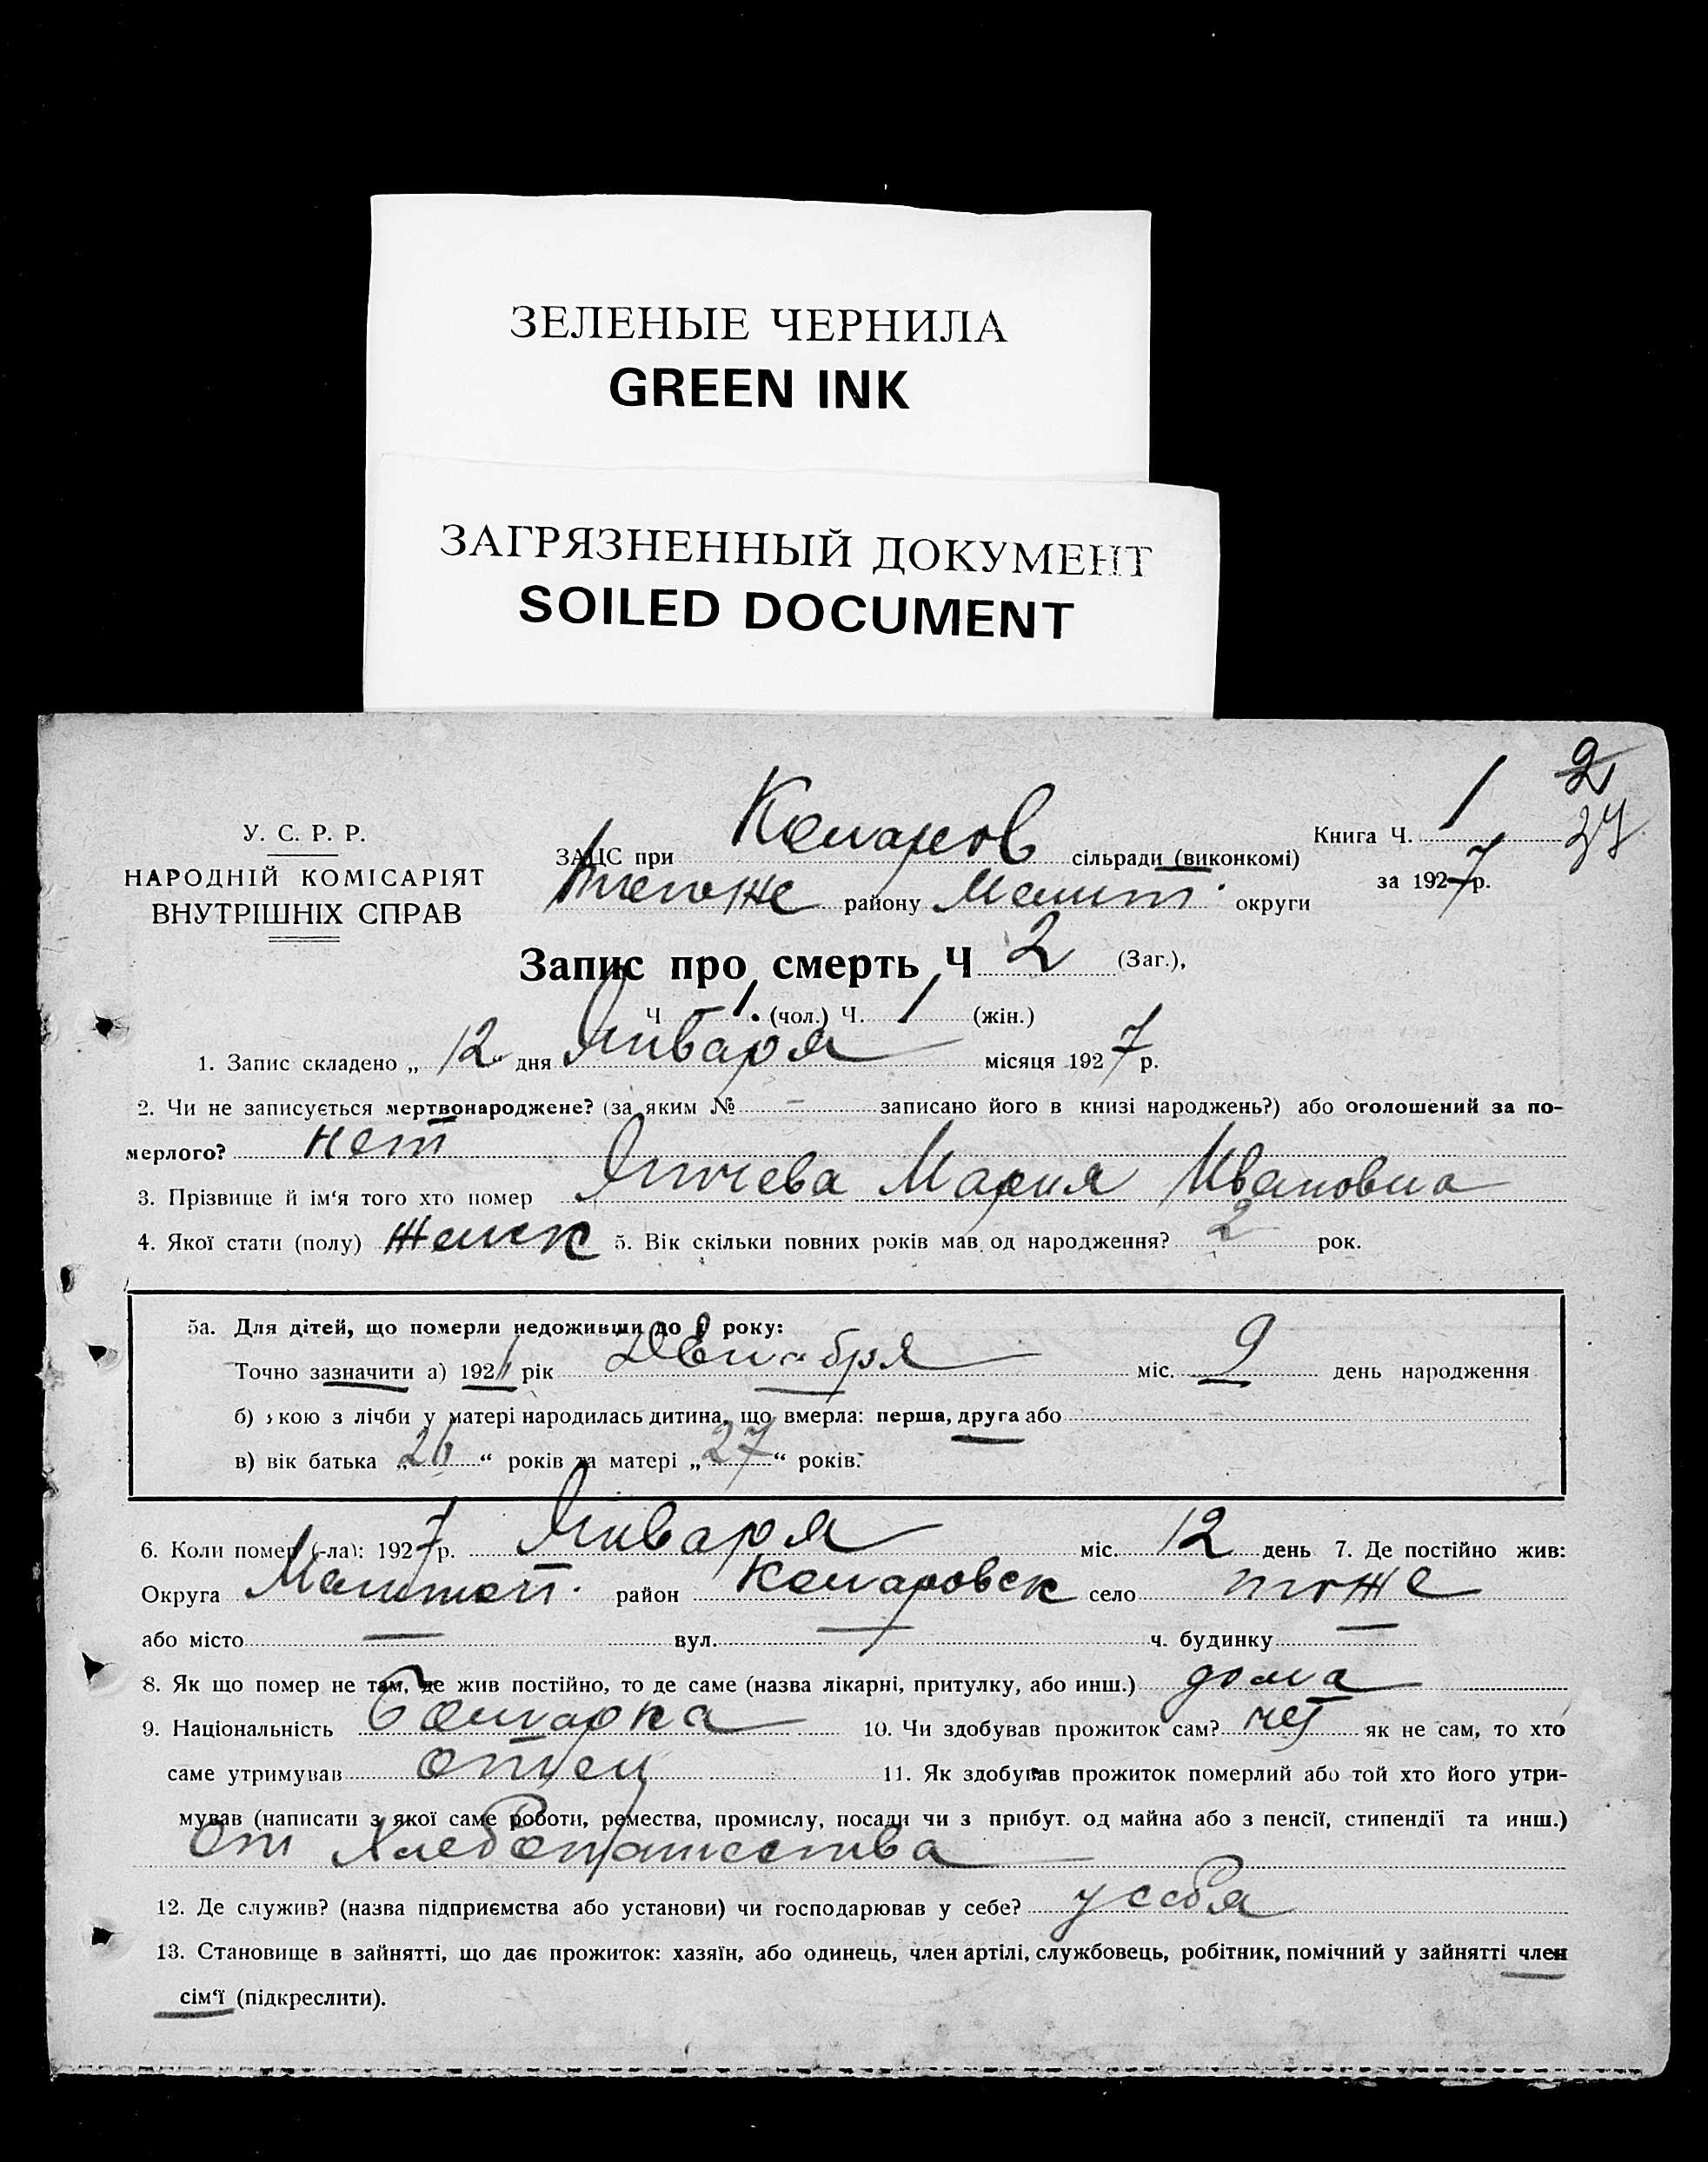 ЗЕЛЕНЫЕ ЧЕРНИЛА
GREEN INK
ЗАГРЯЗНЕННЫЙ ДОКУМЕНТ
SOILED DOCUMENT
2
37
У. С. Р. Р.
НАРОДНІЙ КОМІСАРІЯТ
ВНУТРІШНІХ СПРАВ
Книга Ч. 1
за 1927 р.
ЗАЦС при сільради (виконкомі)
тогоже району Мелит. округи
Запис про смерть Ч 2 (Заг.),
Ч 1. (чол.) Ч. 1 (жін.)
1. Запис складено „ 12 “ дня Января місяця 1927 р.
2. Чи не записується мертвонароджене? (за яким № — записано його в книзі народжень?) або оголошений за по-
мерлого? нет
3. Прізвище й ім‘я того хто помер Мария Ивановна
4. Якої стати (полу) женск 5. Вік скільки повних років мав од народження? 2 рок.
5а. Для дітей, що померли недоживши до року:
Точно зазначити а) 192 рік міс. 9 день народження
б) якою з лічби у матері народилась дитина, що вмерла: перша, друга або
в) вік батька „ 26 “ років та матері „ 27 “ років.
6. Коли помер (-ла): 1927 р. Января міс. 12 день 7. Де постійно жив:
Округа район село тоже
або місто — вул. — ч. будинку —
8. Як що помер не там, де жив постійно, то де саме (назва лікарні, притулку, або инш.) дома
9. Національність Болгарка 10. Чи здобував прожиток сам? нет як не сам, то хто
саме утримував отец 11. Як здобував прожиток померлий або той хто його утри-
мував (написати з якої саме роботи, ремества, промислу, посади чи з прибут. од майна або з пенсії, стипендії та инш.)
от Хлебопашества
12. Де служив? (назва підприємства або установи) чи господарював у себе? у себя
13. Становище в зайнятті, що дає прожиток: хазяїн, або одинець, член артілі, службовець, робітник, помічний у зайнятті член
сім‘ї (підкреслити).